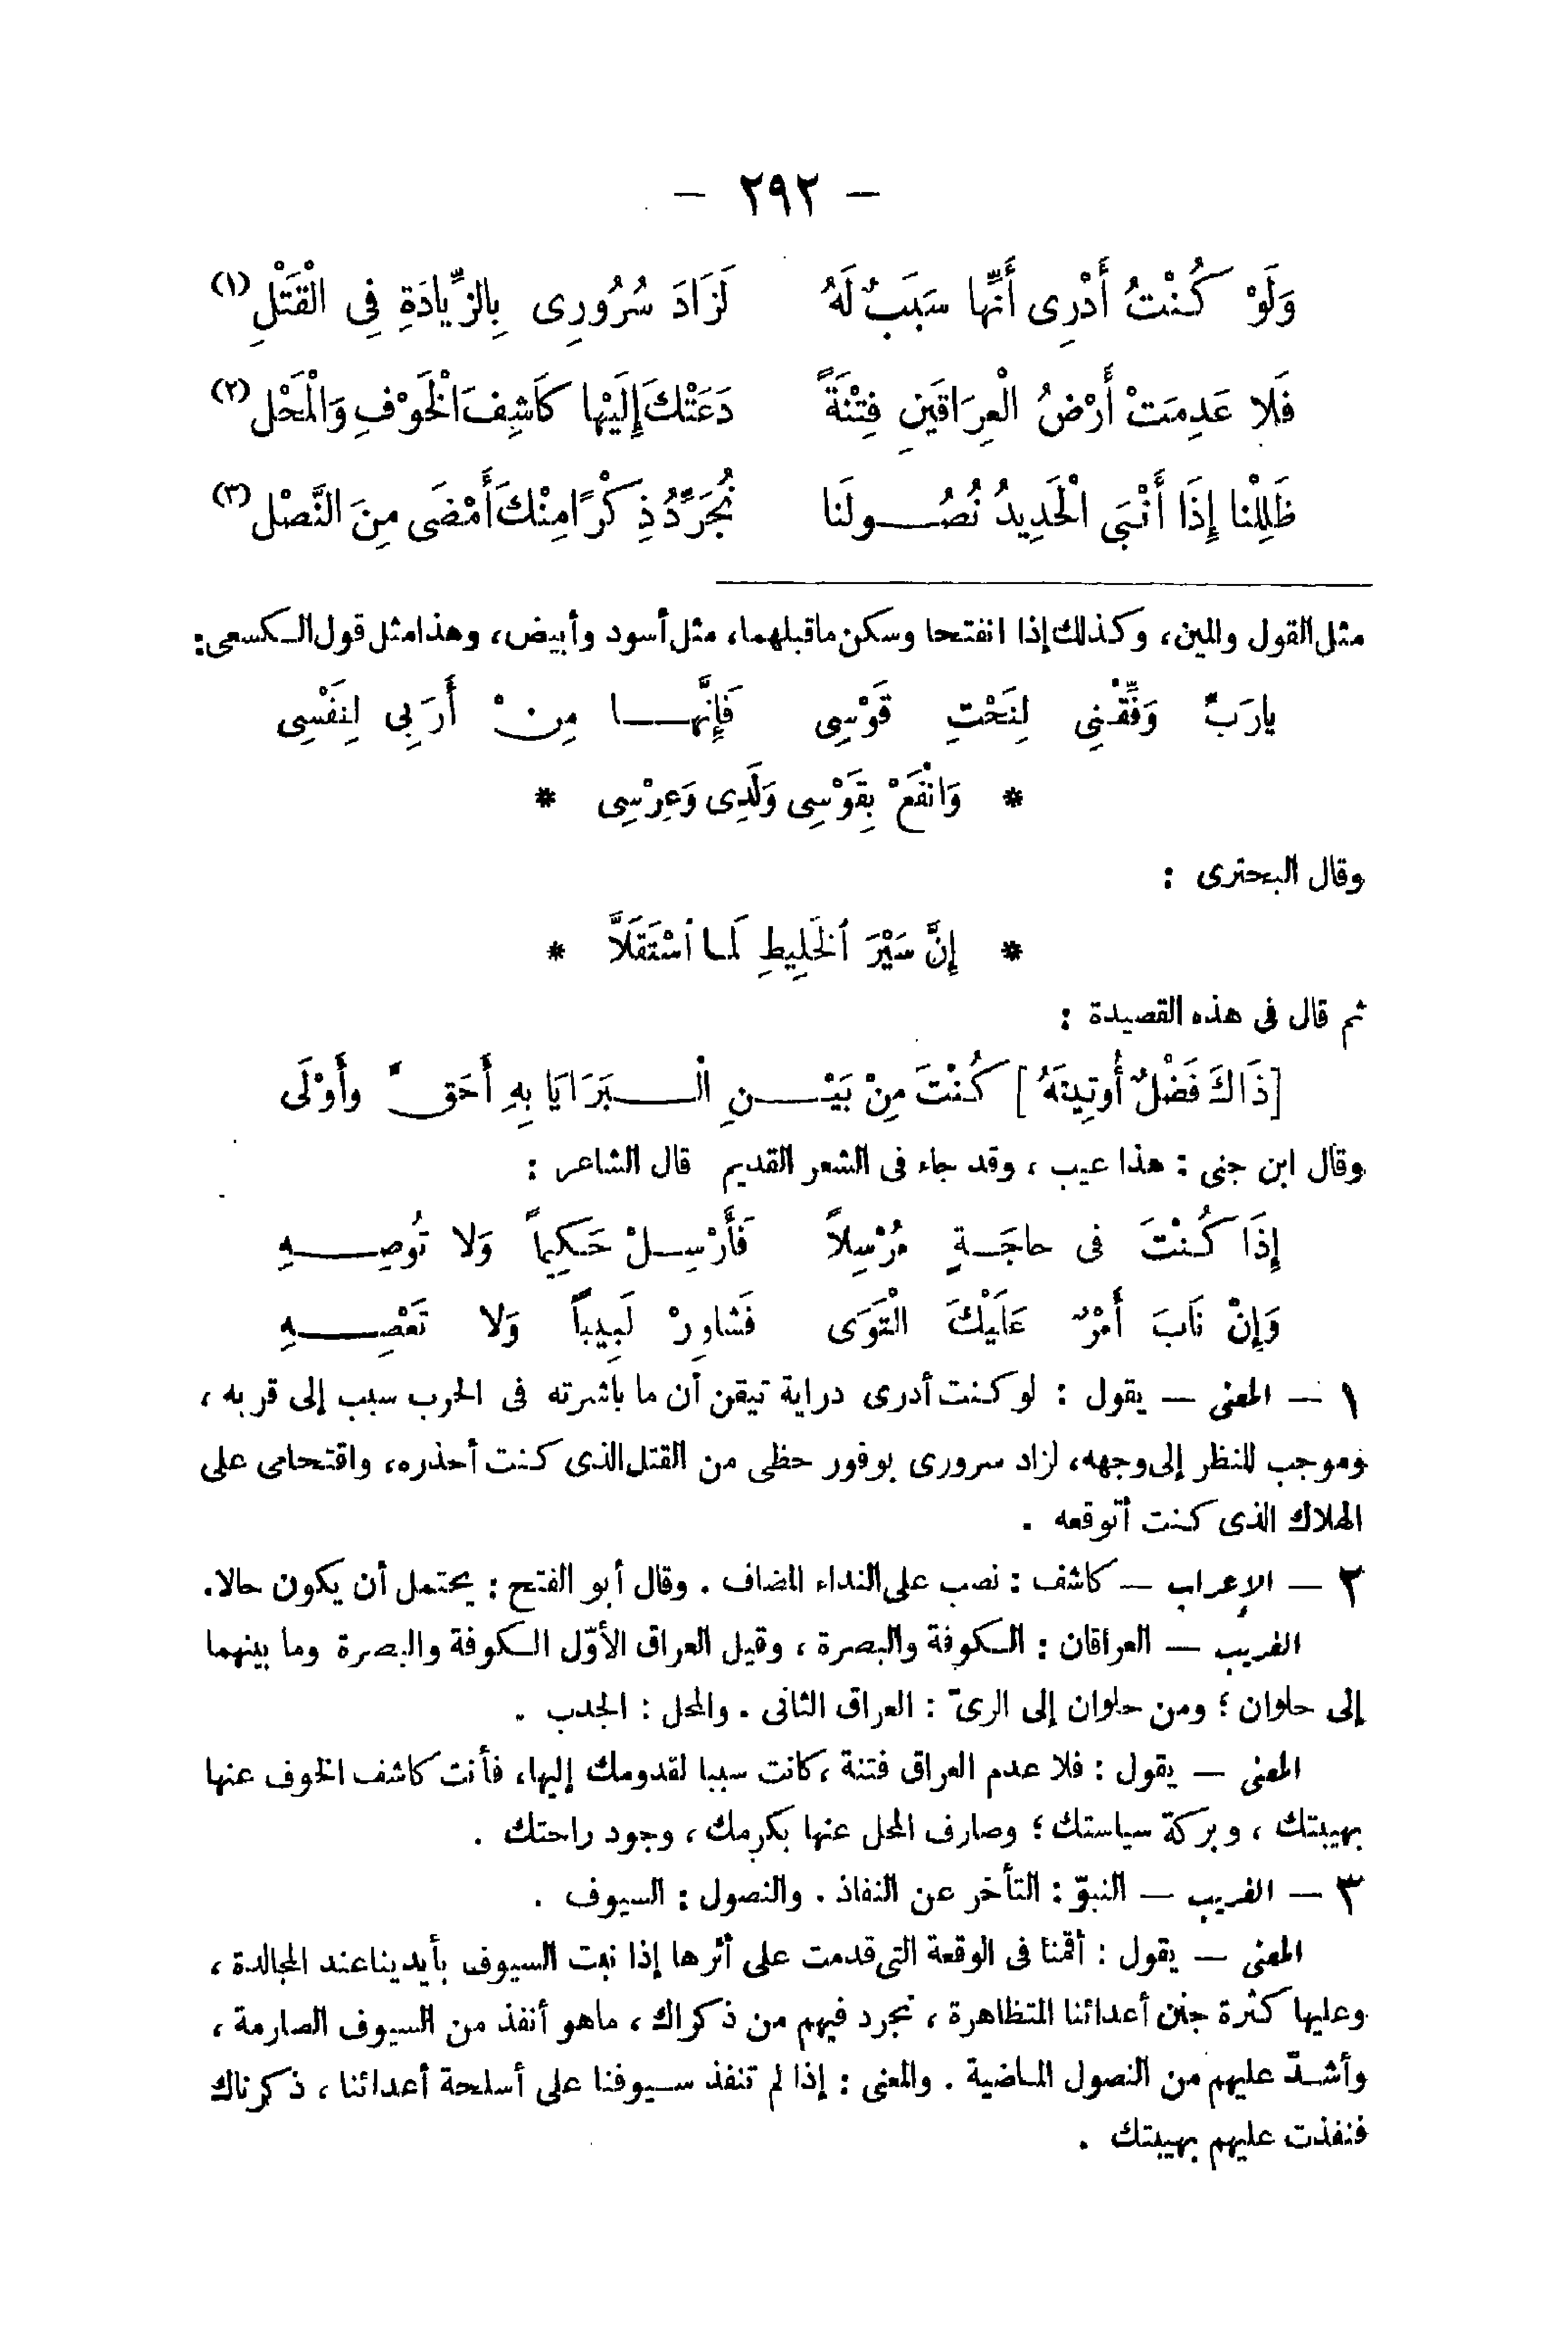 — ٢٩٢ —
وَلَوْ كُنْتُ أَدْرِى أَنَّهَا سَبَبٌ لَهُ لَزَادَ سُرُورِى بِالزِّيَادَةِ فِى الْقَتْلِ (١)
فَلَا عَدِمَتْ أَرْضُ الْعِرَاقَيْنِ فِتْنَةً دَعَتْكَ إِلَيْهَا كَاشِفَ الْخَوْفِ وَالْمَحْلِ (٢)
ظَلِلْنا إِذَا أَنْبَى الْحَدِيدُ نُصُولَنَا نُجَرِّدُ ذِكْرًا مِنْكَ أَمْضَى مِنَ النَّصْلِ (٣)
مثل القول والمين، وكذلك إذا انفتحا وسكن ماقبلهما، مثل أسود وأبيض، وهذا مثل قول الكسعى:
يارَبِّ وَفِّقْنِى لِنَحْتِ قَوْسِى فَإِنَّها مِنْ أَرَبِى لِنَفْسِى
* وَانْفَعْ بِقَوْسِى وَلَدِى وَعِرْسِى *
وقال البحترى :
* إِنَّ سَيْرَ الْخَلِيطِ لَمَا اسْتَقَلَّا *
ثم قال فى هذه القصيدة :
[ذَاكَ فَضْلٌ أُوتِيتَهُ] كُنْتَ مِنْ بَيْنِ الْبَرَايَا بِهِ أَحَقَّ وأَوْلَى
وقال ابن جنى : هذا عيب ، وقد جاء فى الشعر القديم قال الشاعر :
إِذَا كُنْتَ فى حاجَةٍ مُرْسِلاً فَأَرْسِلْ حَكِيماً وَلا تُوصِهِ
وَإِنْ نَابَ أَمْرٌ عَلَيْكَ الْتَوَى فَشاوِرْ لَبِيباً وَلا تَعْصِهِ
١ — المعنى — يقول : لو كنت أدرى دراية تيقن أن ما باشرته فى الحرب سبب إلى قربه ،
وموجب للنظر إلى وجهه، لزاد سرورى بوفور حظى من القتل الذى كنت أحذره، واقتحامى على
الهلاك الذى كنت أتوقعه .
٢ — الإعراب — كاشف : نصب على النداء المضاف . وقال أبو الفتح : يحتمل أن يكون حالا.
الغريب — العراقان : الكوفة والبصرة ، وقيل العراق الأوّل الكوفة والبصرة وما بينهما
إلى حلوان ؛ ومن حلوان إلى الرىّ : العراق الثانى . والمحل : الجدب .
المعنى — يقول : فلا عدم العراق فتنة ، كانت سببا لقدومك إليها، فأنت كاشف الخوف عنها
بهيبتك ، وبركة سياستك ؛ وصارف المحل عنها بكرمك ، وجود راحتك .
٣ — الغريب — النبوّ : التأخر عن النفاذ . والنصول : السيوف .
المعنى — يقول : أقمنا فى الوقعة التى قدمت على أثرها إذا نبت السيوف بأيدينا عند المجالدة ،
وعليها كثرة جنن أعدائنا المتظاهرة ، نجرد فيهم من ذكراك ، ماهو أنفذ من السيوف الصارمة ،
وأشدّ عليهم من النصول الماضية . والمعنى : إذا لم تنفذ سيوفنا على أسلحة أعدائنا ، ذكرناك
فنفذت عليهم بهيبتك .